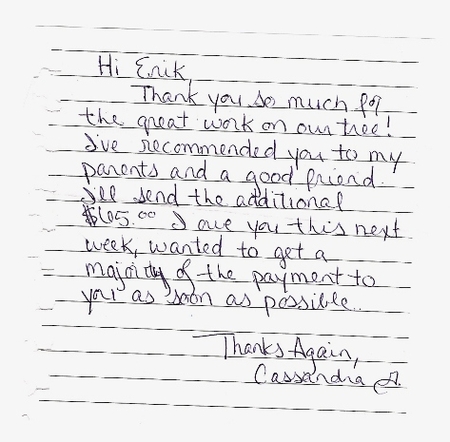 Hi Erik,
Thank you so much for
the great work on our tree!
I've recommended you to my
parents and a good friend.
I'll send the additional
$65.00 I owe you this next
week, wanted to get a
majority of the payment to
you as soon as possible.
Thanks Again,
Cassandra